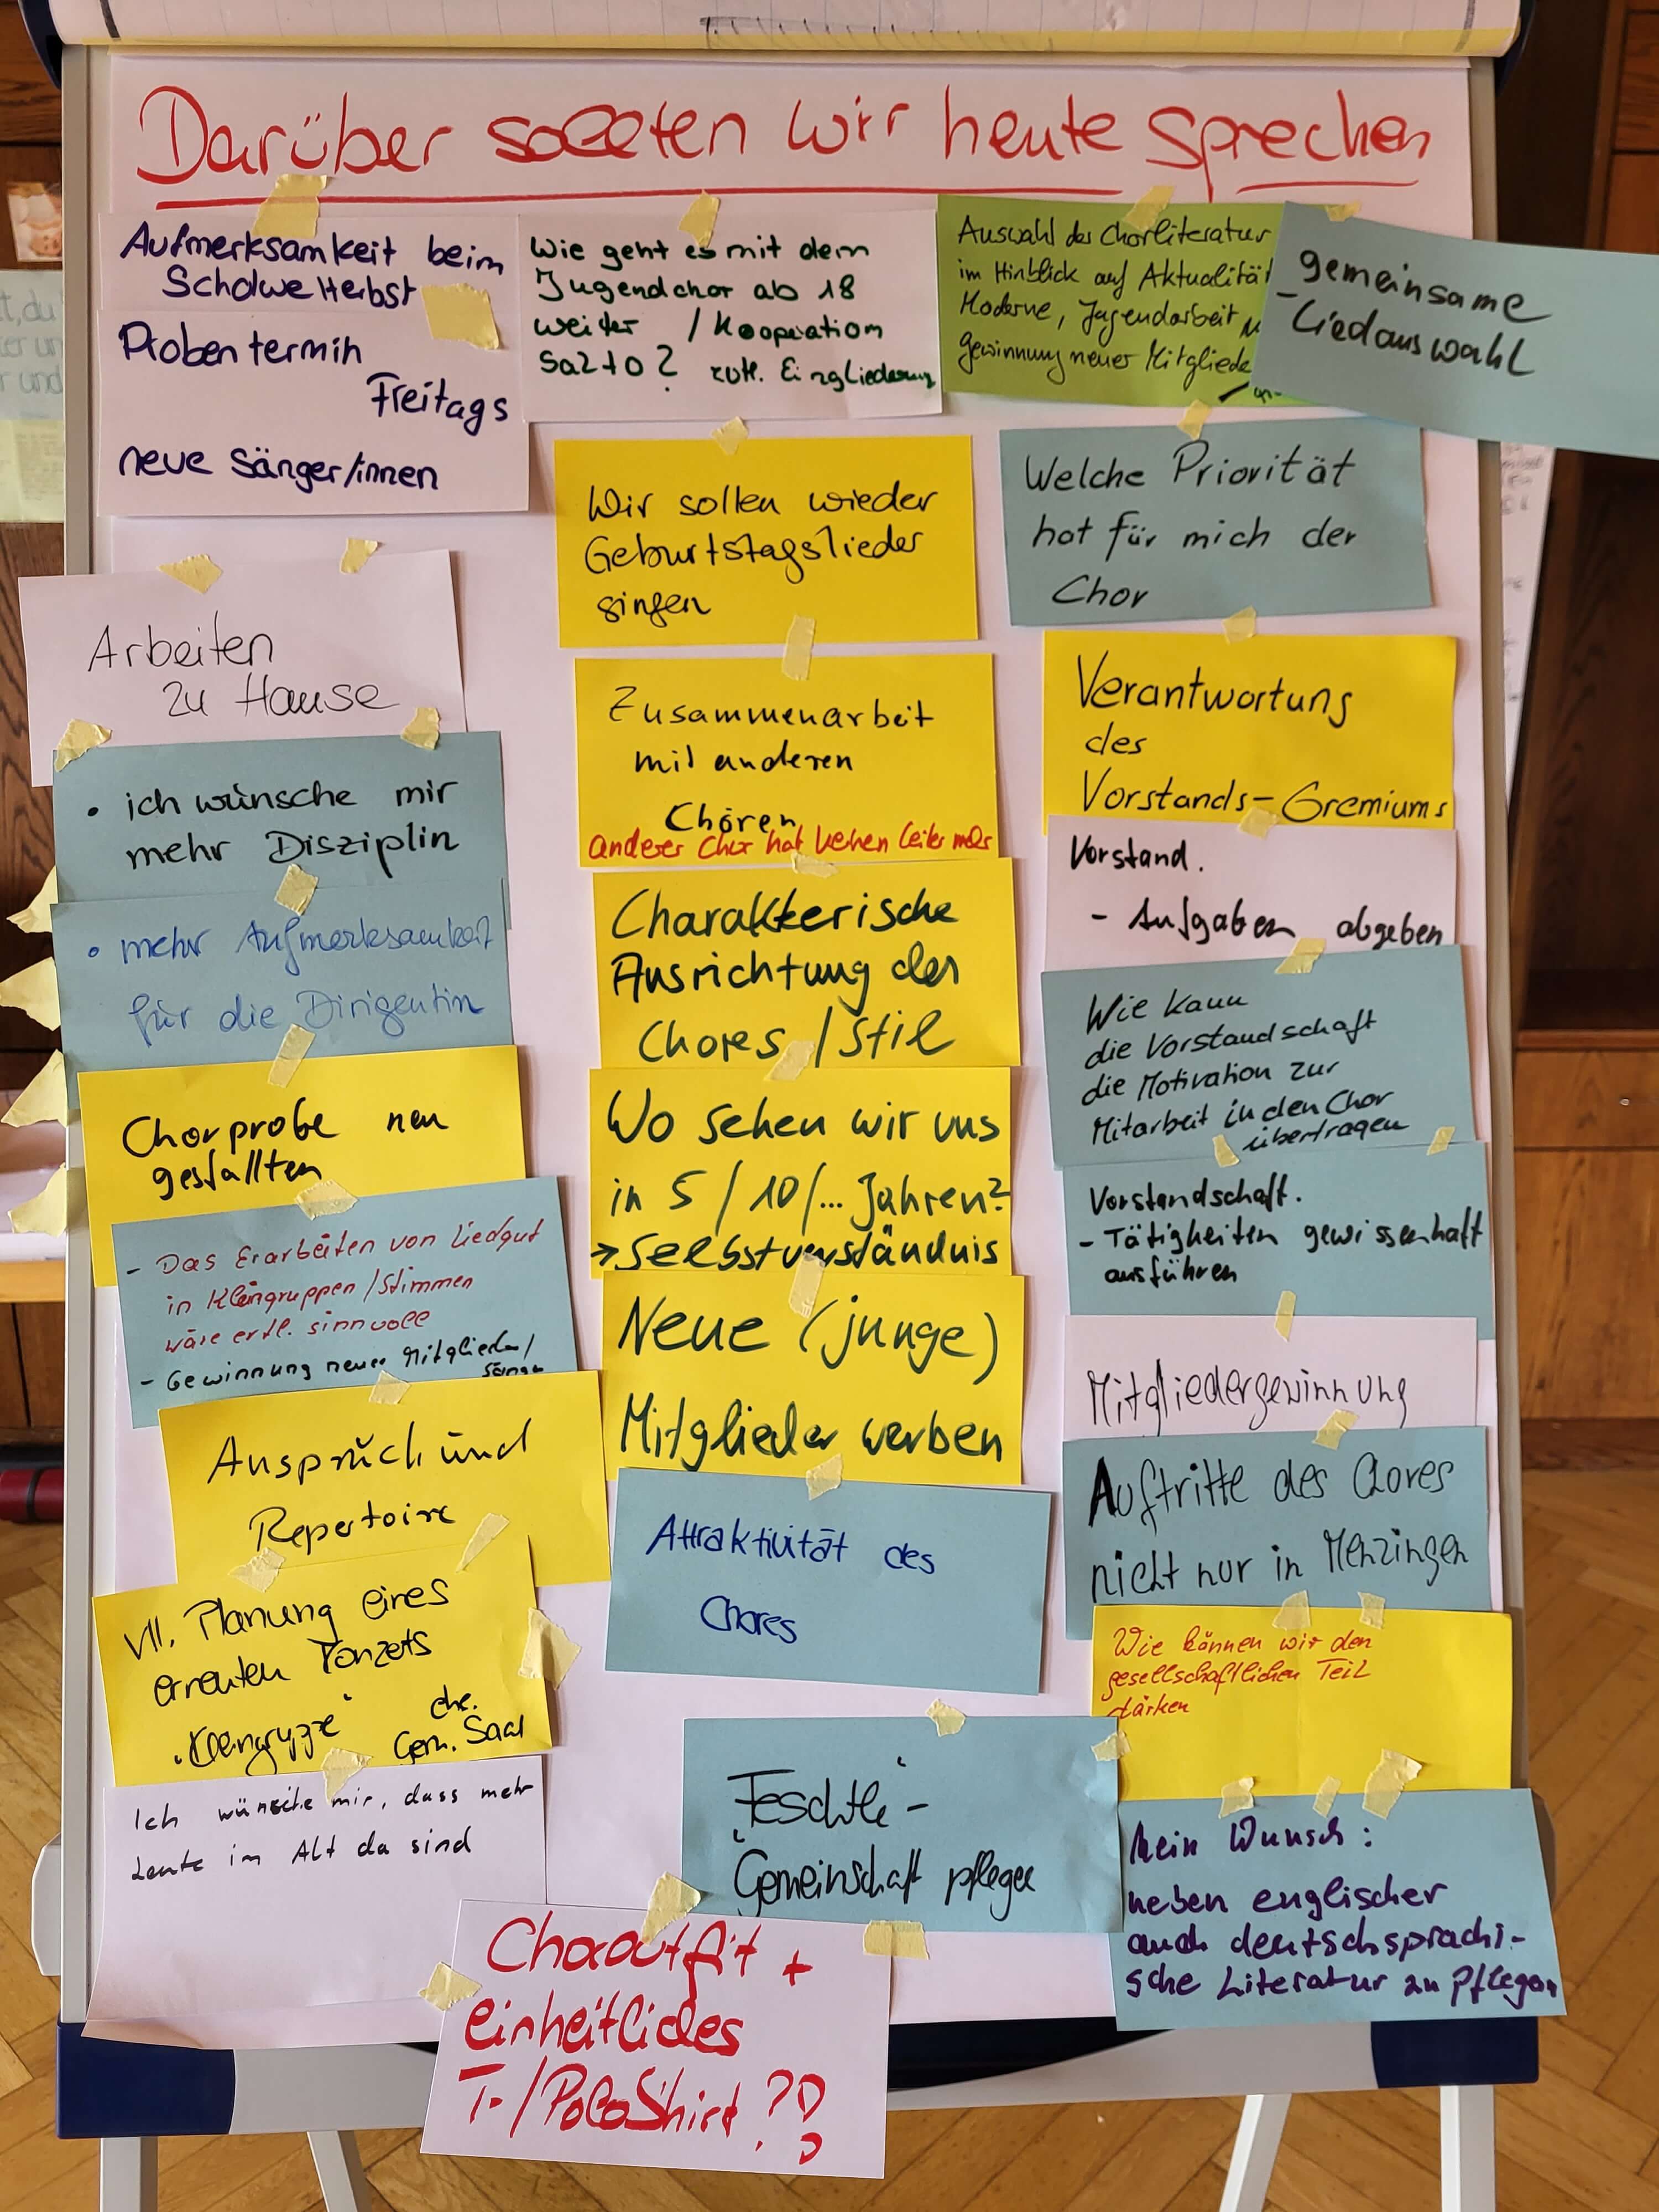 Darüber sollten wir heute sprechen
Aufmerksamkeit beim
Probentermin
Freitags
neue Sänger/innen
Wie geht es mit dem
Jugendchor ab 18
weiter / Kooperation
Salto? evtl. Eingliederung
Auswahl der Chorliteratur
im Hinblick auf Aktualität
Moderne, Jugendarbeit
gewinnung neuer Mitglieder
gemeinsame
Liedauswahl
Arbeiten
zu Hause
• ich wünsche mir
mehr Disziplin
• mehr Aufmerksamkeit
für die Dirigentin
Chorprobe neu
gestallten
- Das Erarbeiten von Liedgut
in Kleingruppen/Stimmen
wäre evtl. sinnvoll
- Gewinnung neuer Mitglieder/
Sänger
Anspruch und
Repertoire
VII. Planung eines
erneuten Konzerts
"Kleingruppe"
Gem. Saal
Ich wünsche mir, dass mehr
Leute im Alt da sind
Wir sollen wieder
Geburtstagslieder
singen
Zusammenarbeit
mit anderen
Chören
anderer Chor hat keinen Leiter mehr
Charakterische
Ausrichtung des
Chores / Stil
Wo sehen wir uns
in 5 / 10 /... Jahren?
→ Selbstverständnis
Neue (junge)
Mitglieder werben
Attraktivität des
Chores
"Feschtle" -
Gemeinschaft pflegen
Choroutfit +
einheitliches
T-/PoloShirt ??
Welche Priorität
hat für mich der
Chor
Verantwortung
des
Vorstands-Gremiums
Vorstand.
- Aufgaben abgeben
Wie kann
die Vorstandschaft
die Motivation zur
Mitarbeit in den Chor
übertragen
Vorstandschaft.
- Tätigkeiten gewissenhaft
ausführen
Mitgliedergewinnung
Auftritte des Chores
nicht nur in Menzingen
Wie können wir den
gesellschaftlichen Teil
stärken
Mein Wunsch:
neben englischer
auch deutschsprachi-
sche Literatur zu pflegen